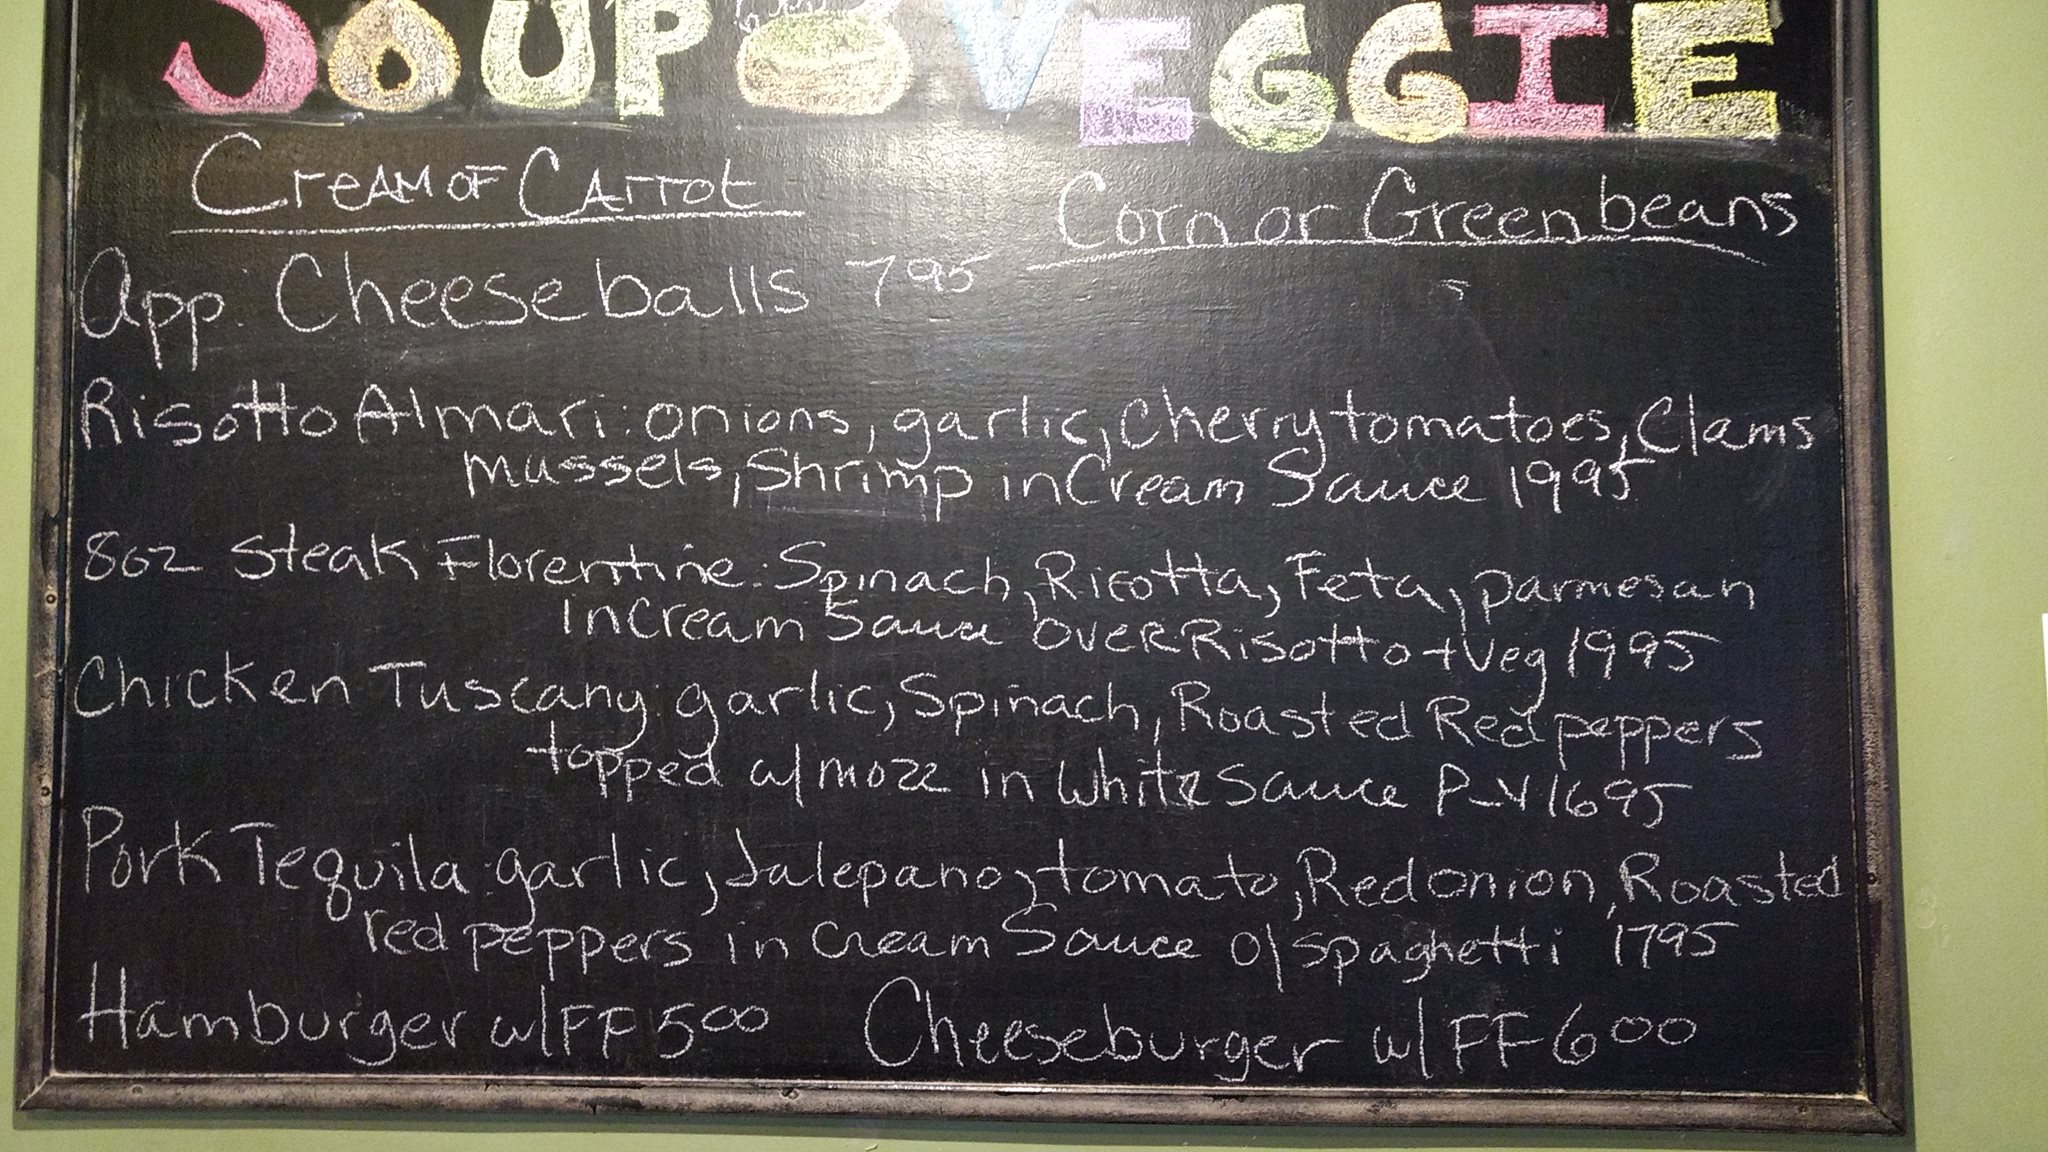 SOUP VEGGIE
Cream of Carrot
Corn or Green beans
App. Cheese balls 795
Risotto Almari: onions, garlic, Cherry tomatoes, Clams
mussels, Shrimp in Cream Sauce 1995
8oz Steak Florentine: Spinach, Ricotta, Feta, parmesan
in cream Sauce over Risotto + Veg 1995
Chicken Tuscany: garlic, Spinach, Roasted Red peppers
topped w/ mozz in White Sauce P-V 1695
Pork Tequila: garlic, Jalepano, tomato, Red onion, Roasted
red peppers in cream Sauce o/ spaghetti 1795
Hamburger w/ FF 500 Cheeseburger w/ FF 600